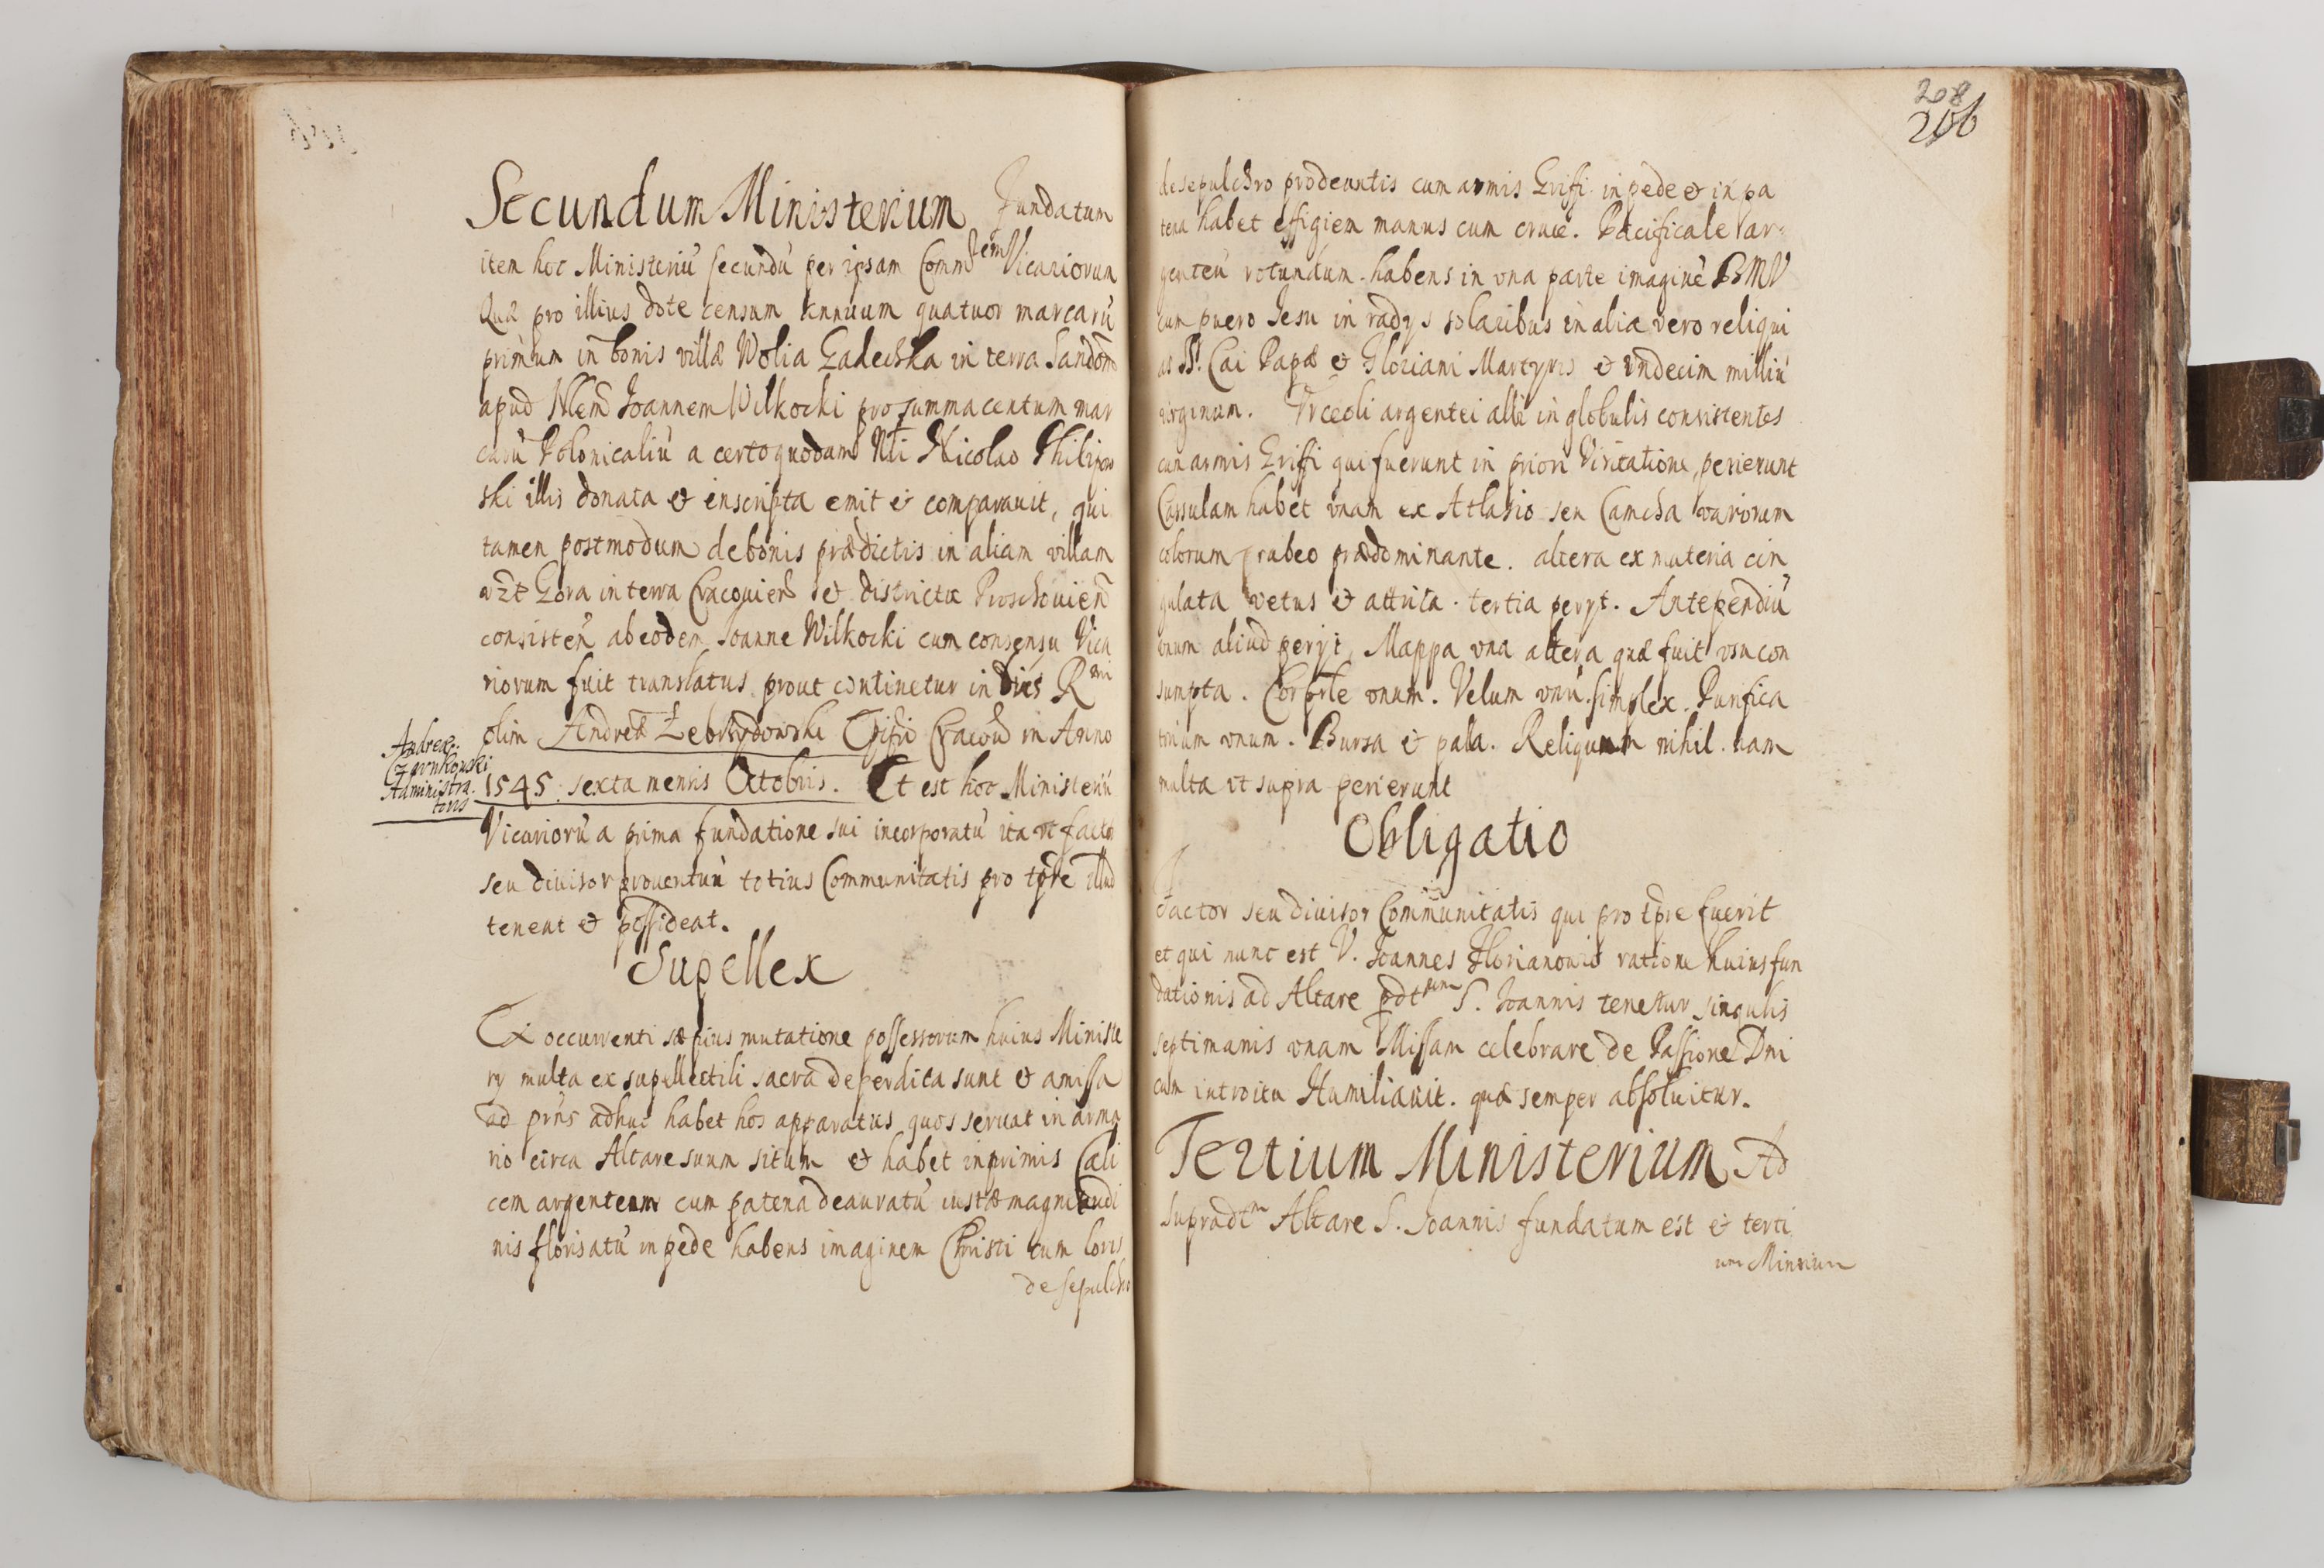 Secundum Ministerium Fundatum
item hoc Ministeriū secundū per ipsam Commtem Vicariorum
Quæ pro illius dote censum annuum quatuor marcarū
primum in bonis villæ Wolia Gadecska in terra Sandom
apud Nlem Joannem Wilkocki pro summa centum mar
carū Polonicaliū a certo quodam Nli Nicolao Philipow
ski illis donata & inscripta emit & comparauit, qui
tamen postmodum de bonis prædictis in aliam villam
vzt Gora in terra Cracouien̄ et districtu Proschouien̄
consisten̄ ab eodem Joanne Wilkocki cum consensu Vica
riorum fuit translatus prout continetur in Rmi
olim Andreæ Zebrzydowski Epi Cracou in Anno
Andreæ
Czarnkowski
Administra
toris
1545 sexta mensis Octobris. Et est hoc Ministeriū
Vicariorū a prima fundatione sui incorporatū ita vt factor
seu diuisor prouentuū totius Communitatis pro tp̄re illud
teneat & possideat.
Supellex
Ex occurrenti sæpius mutatione possessorum huius Ministe
ry multa ex supellectili sacra deperdita sunt & amissa
ad prn̄s adhuc habet hos apparatus quos seruat in arma
rio circa Altare suum situm & habet inprimis Cali
cem argenteum cum patena deauratū iustæ magnitudi
nis florisatū in pede habens imaginem Christi cum loris
de sepulchro
208
206
de sepulchro prodeuntis cum armis Griffi in pede & in pa
tena habet effigiem manus cum cruce. Pacificale ar=
genteū rotundum habens in vna parte imaginē BMV
cum puero Jesu in radys solaribus in alia vero reliqui
as SS. Cai Papæ & Floriani Martyris & vndecim milliū
virginum. Vrceoli argentei albi in globulis consistentes
cum armis Griffi qui fuerunt in priori Visitatione, perierunt
Cassulam habet vnam ex Atlasio seu Camcha variorum
colorum rubeo prædominante. altera ex materia cin
gulata vetus & attrita. tertia peryt. Antependiū
vnum aliud peryt, Mappa vna altera quæ fuit vsu con
sumpta. Corprle vnum. Velum vnū simplex. Purifica
torium vnum. Bursa & palla. Reliquum nihil. nam
multa vt supra perierunt
Obligatio
Factor seu diuisor Communitatis qui pro tp̄re fuerit
et qui nunc est V. Joannes Florianowic ratione huius fun
dationis ad Altare pdtum S. Joannis tenetur singulis
septimanis vnam Missam celebrare de Passione Dni
cum introitu Humiliauit. quæ semper absoluitur.
Tertium Ministerium Ad
supradtm Altare S. Joannis fundatum est & terti
um Minrium